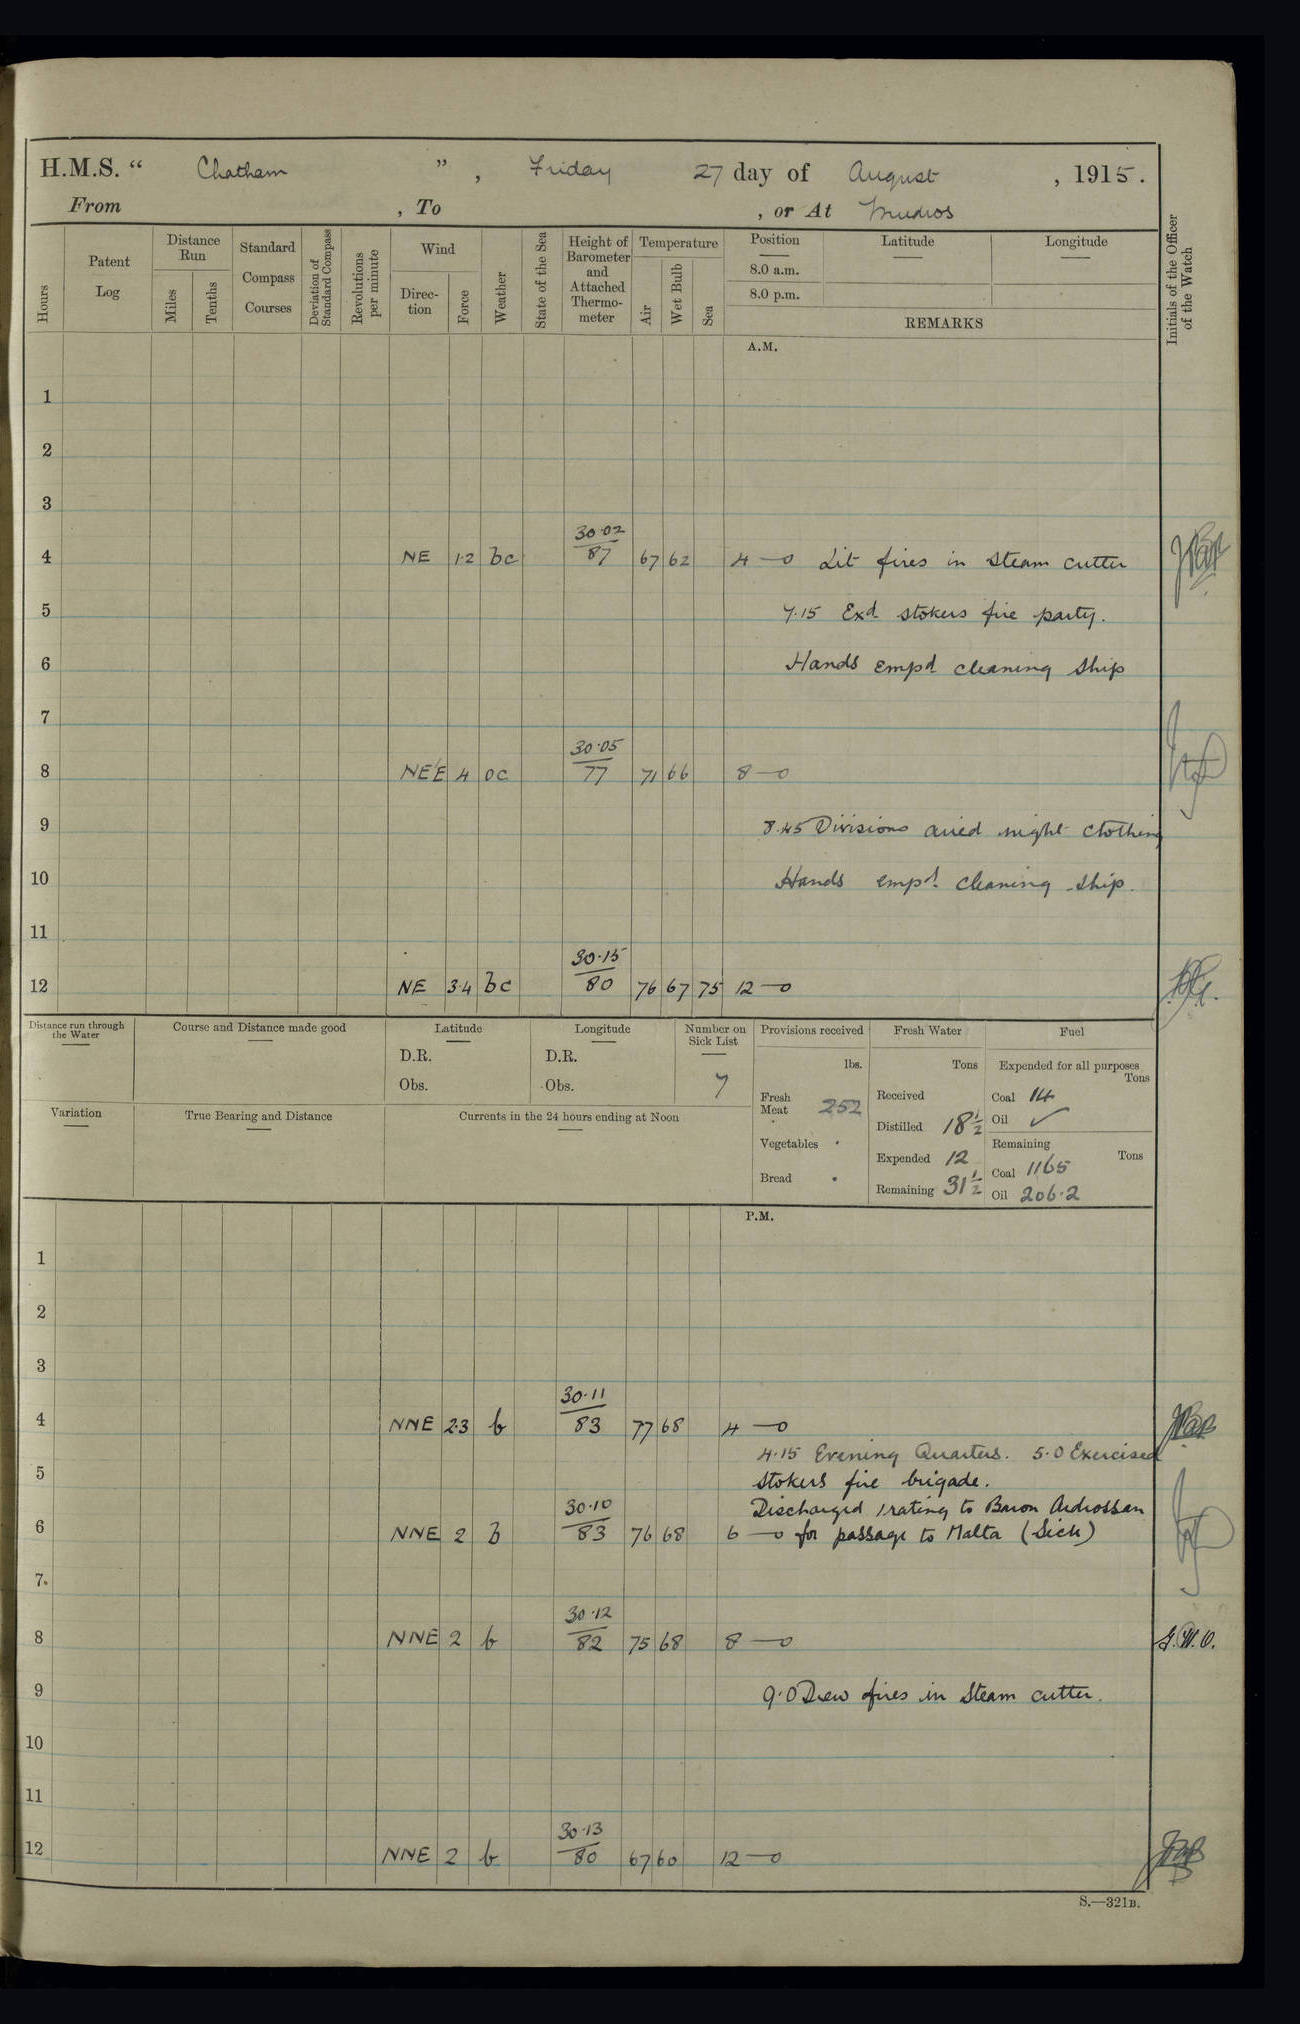 H.M.S. “ Chatham ” , Friday 27 day of August , 1915.
From , To , or At Mudros
Hours
Patent Log
Distance Run
Miles
Tenths
Standard Compass Courses
Deviation of Standard Compass
Revolutions per minute
Wind
Direc-tion
Force
Weather
State of the Sea
Height of Barometer and Attached Thermo-meter
Temperature
Air
Wet Bulb
Sea
Position
8.0 a.m.
8.0 p.m.
Latitude
Longitude
REMARKS
Initials of the Officer of the Watch
A.M.
1
2
3
30·02
4 NE 1·2 bc 87 67 62 4—0 Lit fires in steam cutter
5 7·15 Exd. stokers fire party.
6 Hands empd cleaning ship
7
30·05
8 NE'E 4 oc 77 71 66 8—0
9 8.45 Divisions aired night clothing
10 Hands empd. cleaning ship.
11
30·15
12 NE 3·4 bc 80 76 67 75 12—0
Distance run through the Water
Course and Distance made good
Latitude
D.R.
Obs.
Longitude
D.R.
Obs.
Number on Sick List
7
Provisions received
lbs.
Fresh Meat 252
Vegetables
Bread
Fresh Water
Tons
Received
Distilled 18½
Expended 12
Remaining 31½
Fuel
Expended for all purposes
Tons
Coal 14
Oil ✓
Remaining
Tons
Coal 1165
Oil 206·2
Variation
True Bearing and Distance
Currents in the 24 hours ending at Noon
P.M.
1
2
3
30·11
4 NNE 2·3 b 83 77 68 4—0
4·15 Evening Quarters. 5·0 Exercised
5 stokers fire brigade.
30·10 Discharged 1 rating to Baron Ardrossan
6 NNE 2 b 83 76 68 6—0 for passage to Malta (Sick)
7.
30·12
8 NNE 2 b 82 75 68 8—0 G.W.O.
9 9·0 Drew fires in Steam cutter.
10
11
30·13
12 NNE 2 b 80 67 60 12—0
S.—321B.